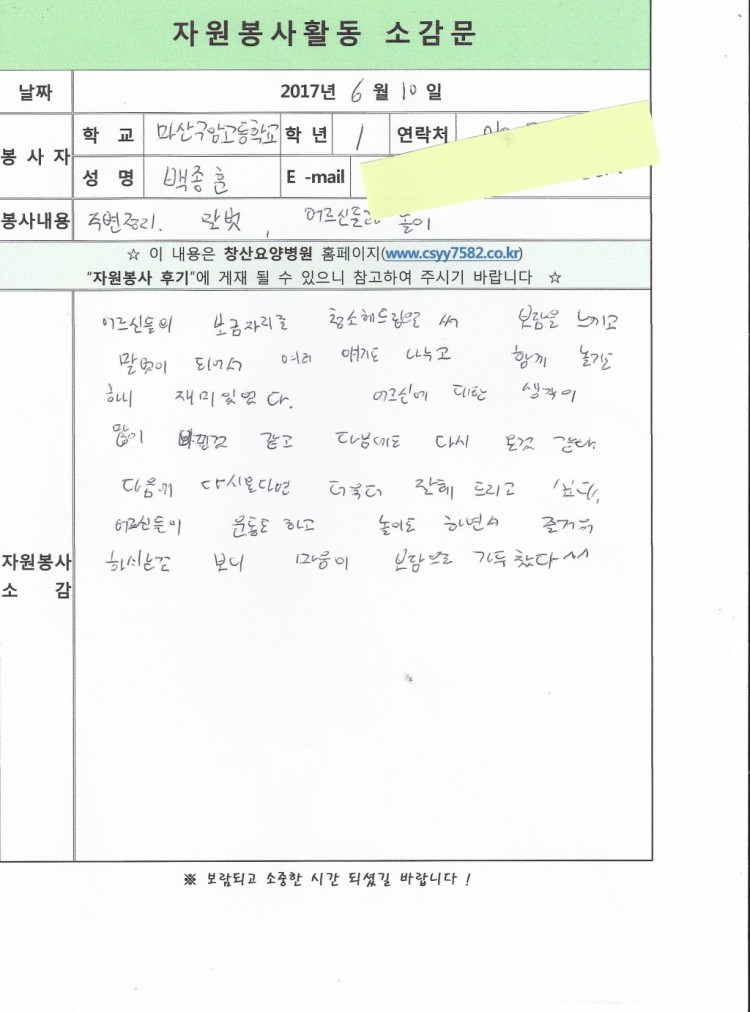 자원봉사활동 소감문
날짜 2017년 6 월 10 일
봉사자 학 교 마산구암고등학교 학 년 1 연락처
성 명 백종훈 E -mail
봉사내용 주변정리. 말벗, 어르신들과 놀이
☆ 이 내용은 창산요양병원 홈페이지(www.csyy7582.co.kr)
“자원봉사 후기”에 게재 될 수 있으니 참고하여 주시기 바랍니다 ☆
자원봉사 소 감
어르신들의 보금자리를 청소해드림으로 써 보람을 느끼고
말벗이 되어서 여러 얘기도 나누고 함께 놀기도
하니 재미있었다. 어르신에 대한 생각이
많이 바뀐것 같고 다음에도 다시 올것 같다.
다음에 다시온다면 더욱더 잘해 드리고 싶다.
어르신들이 운동도 하고 놀이도 하면서 즐거워
하시는걸 보니 마음이 보람으로 가득 찼다 ^^
※ 보람되고 소중한 시간 되셨길 바랍니다 !